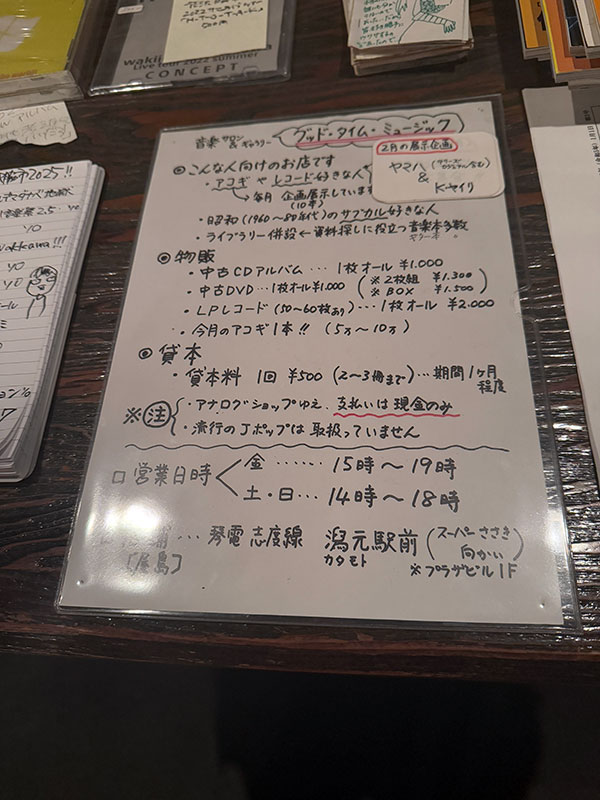 waki
Live tour 2022 summer
CONCEPT
音楽サロン&ギャラリー グッド・タイム・ミュージック
2月の展示企画
ヤマハ
&
K・ヤイリ
◎こんな人向けのお店です
・アコギやレコード好きな人
→毎月 企画展示しています
(10本)
・昭和(1960〜80年代)のサブカル好きな人
・ライブラリー併設←資料探しに役立つ音楽本多数
◎物販
・中古CDアルバム… 1枚オール ¥1.000
・中古DVD…1枚オール ¥1.000 (※2枚組 ¥1.300
※BOX ¥1.500)
・LPレコード(50〜60枚あり)…1枚オール ¥2.000
・今月のアコギ1本!! (5万〜10万)
◎貸本
・貸本料 1回 ¥500 (2〜3冊まで)…期間1ヶ月
程度
※注 ・アナログショップゆえ、支払いは現金のみ
・流行のJポップは取扱っていません
□営業日時 金…… 15時〜19時
土・日… 14時〜18時
… 琴電 志度線 潟元駅前 (スーパーささき
向かい)
カタモト
[屋島]
※プラザビル1F
2025!!
yo
yo